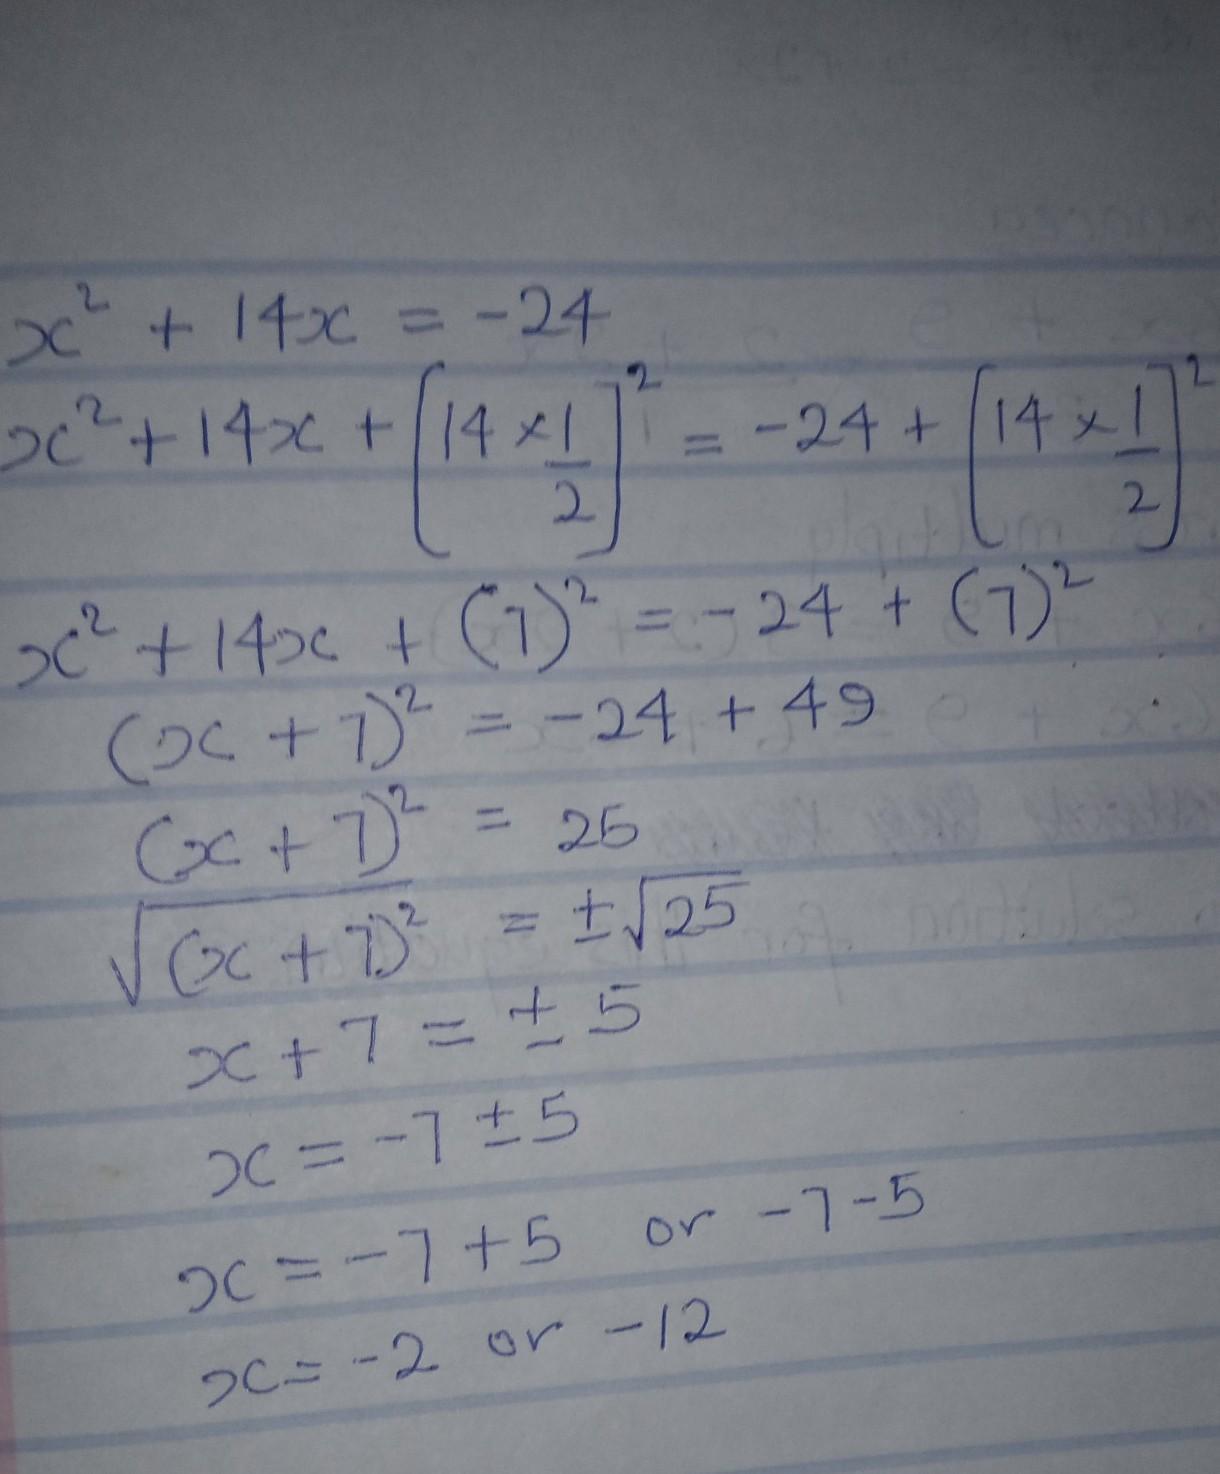 x² + 14x = -24
x² + 14x + [14 × 1/2]² = -24 + [14 × 1/2]²
x² + 14x + (7)² = -24 + (7)²
(x + 7)² = -24 + 49
(x + 7)² = 25
√(x + 7)² = ±√25
x + 7 = ± 5
x = -7 ± 5
x = -7 + 5 or -7 - 5
x = -2 or -12